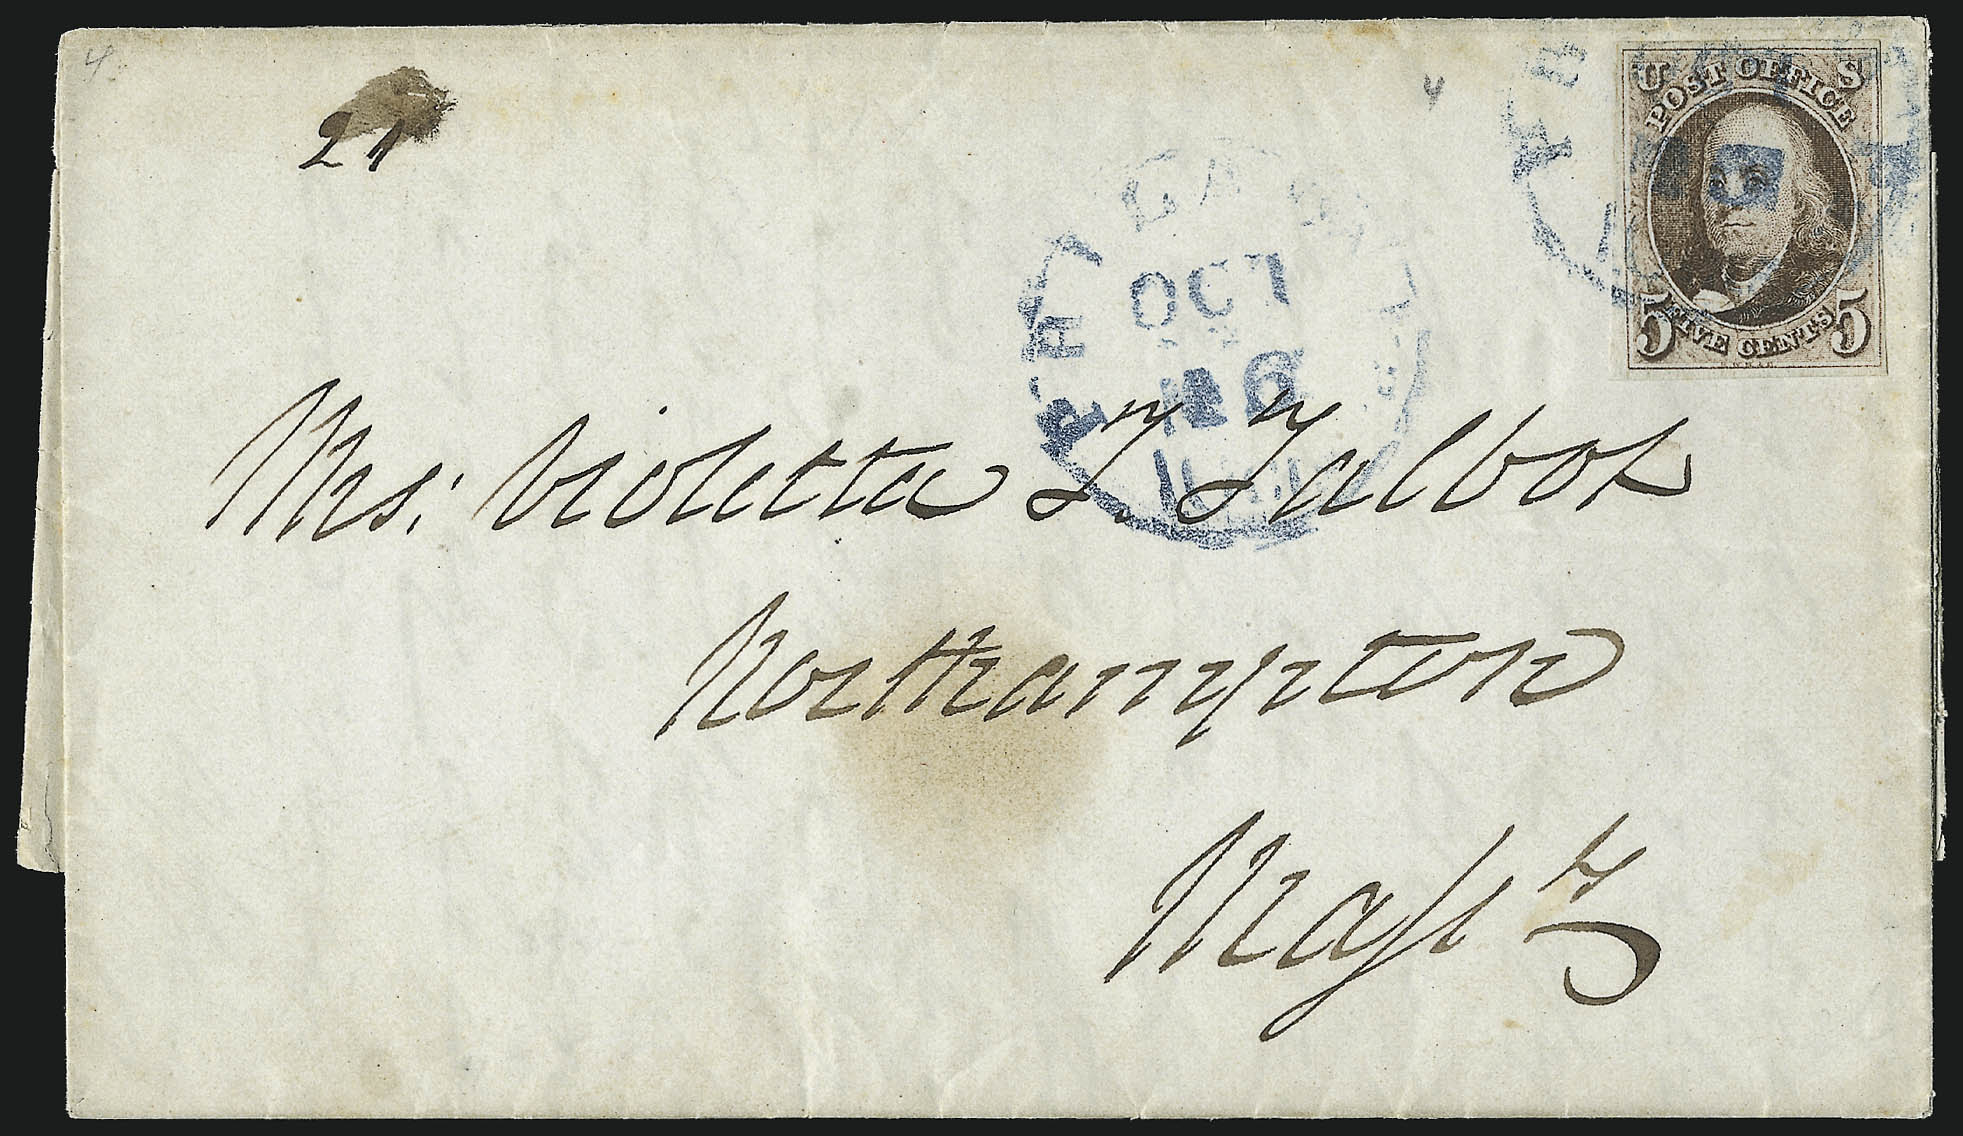 4
21
4
U S
POST OFFICE
5 FIVE CENTS 5
OCT
Mrs: Violetta L. Talbot
Northampton
Mass